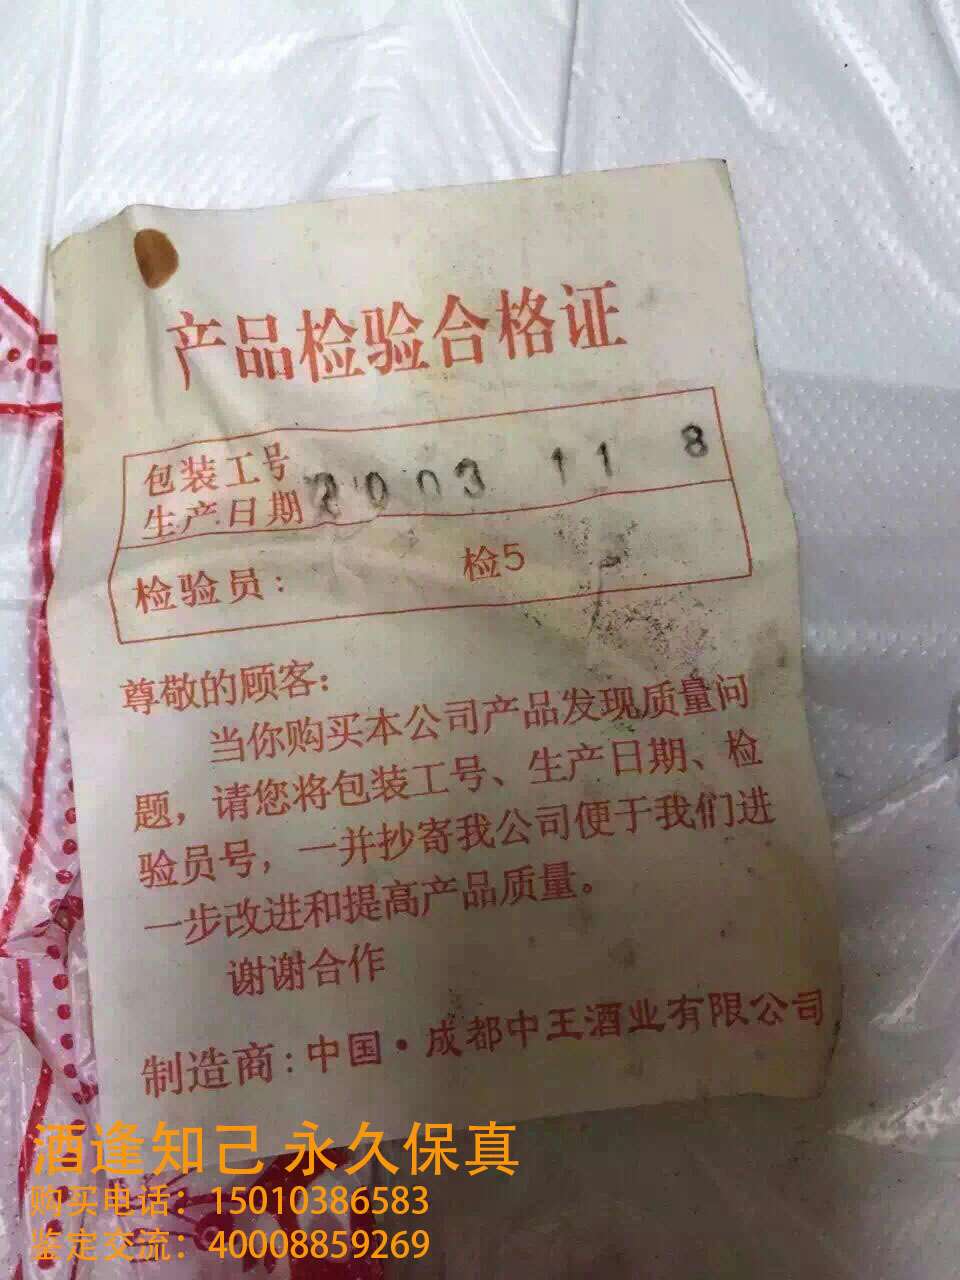 产品检验合格证
包装工号
生产日期 2003 11 8
检验员: 检5
尊敬的顾客:
当你购买本公司产品发现质量问
题，请您将包装工号、生产日期、检
验员号，一并抄寄我公司便于我们进
一步改进和提高产品质量。
谢谢合作
制造商:中国·成都中王酒业有限公司
酒逢知己 永久保真
购买电话：15010386583
鉴定交流：40008859269